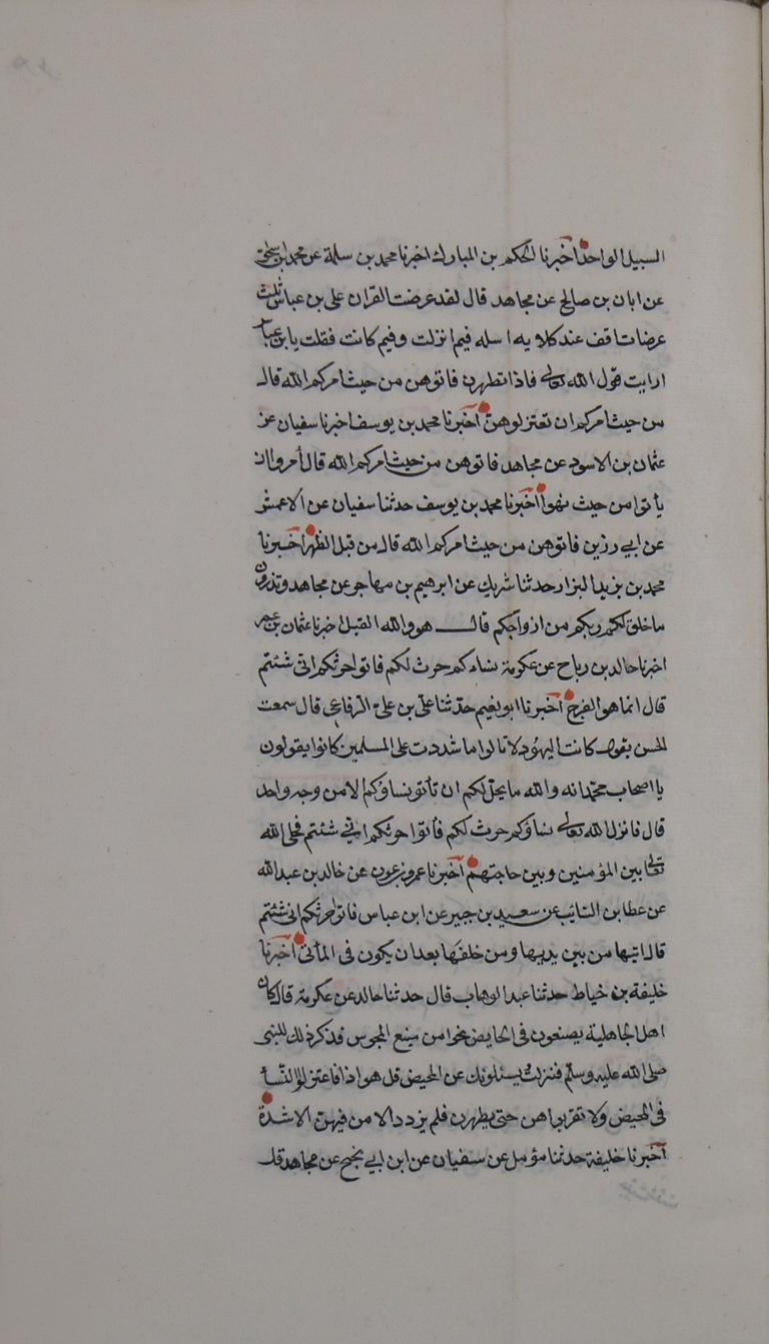 السبيل الواحد اخبرنا الحكم بن المبارك اخبرنا محمد بن سلمة عن محمد ابن اسحق
عن ابان بن صالح عن مجاهد قال لقد عرضت القران على بن عباس ثلث
عرضات اقف عند كل ايه اسله فيم انزلت وفيم كانت فقلت يا بن عباس
ارايت قول الله تعالى فاذا تطهرن فاتوهن من حيث امركم الله قال
من حيث امركم ان تعتزلوهن اخبرنا محمد بن يوسف اخبرنا سفيان عن
عثمان بن الاسود عن مجاهد فاتوهن من حيث امركم الله قال أمروا ان
يأتوا من حيث نهوا اخبرنا محمد بن يوسف حدثنا سفيان عن الاعمش
عن ابي رزين فاتوهن من حيث امركم الله قال من قبل الطهر اخبرنا
محمد بن يزيد البزار حدثنا شريك عن ابرهيم بن مهاجر عن مجاهد وتذرون
ما خلق لكم ربكم من ازواجكم قال هو والله القبل اخبرنا عثمان بن عمر
اخبرنا خالد بن رباح عن عكرمة نساءكم حرث لكم فاتوا حرثكم انى شئتم
قال انما هو الفرج اخبرنا ابو نعيم حدثنا علي بن علي الرفاعي قال سمعت
الحسن يقول كانت اليهود لا تالوا ما شددت على المسلمين كانوا يقولون
يا اصحاب محمد انه والله ما يحل لكم ان تأتو نساؤكم الا من وجه واحد
قال فانزل الله تعالى نساؤكم حرث لكم فأتوا حرثكم انى شئتم فخلى الله
تعالى بين المؤمنين وبين حاجتهم اخبرنا عمرو بن عون عن خالد بن عبد الله
عن عطا بن السائب عن سعيد بن جبير عن ابن عباس فاتوا حرثكم انى شئتم
قال اتيها من بين يديها ومن خلفها بعد ان يكون في المأتى اخبرنا
خليفة بن خياط حدثنا عبد الوهاب قال حدثنا خالد عن عكرمة قال كان
اهل الجاهلية يصنعون في الحايض نحوا من صنيع المجوس فذكر ذلك للنبى
صلى الله عليه وسلم فنزلت يسئلونك عن المحيض قل هو اذا فاعتزلوا النسأ
في المحيض ولا تقربوا هن حتى يطهرن فلم يزدد الامر فيهن الا شدة
اخبرنا خليفة حدثنا مؤمل عن سفيان عن ابن ابي نجيح عن مجاهد قل